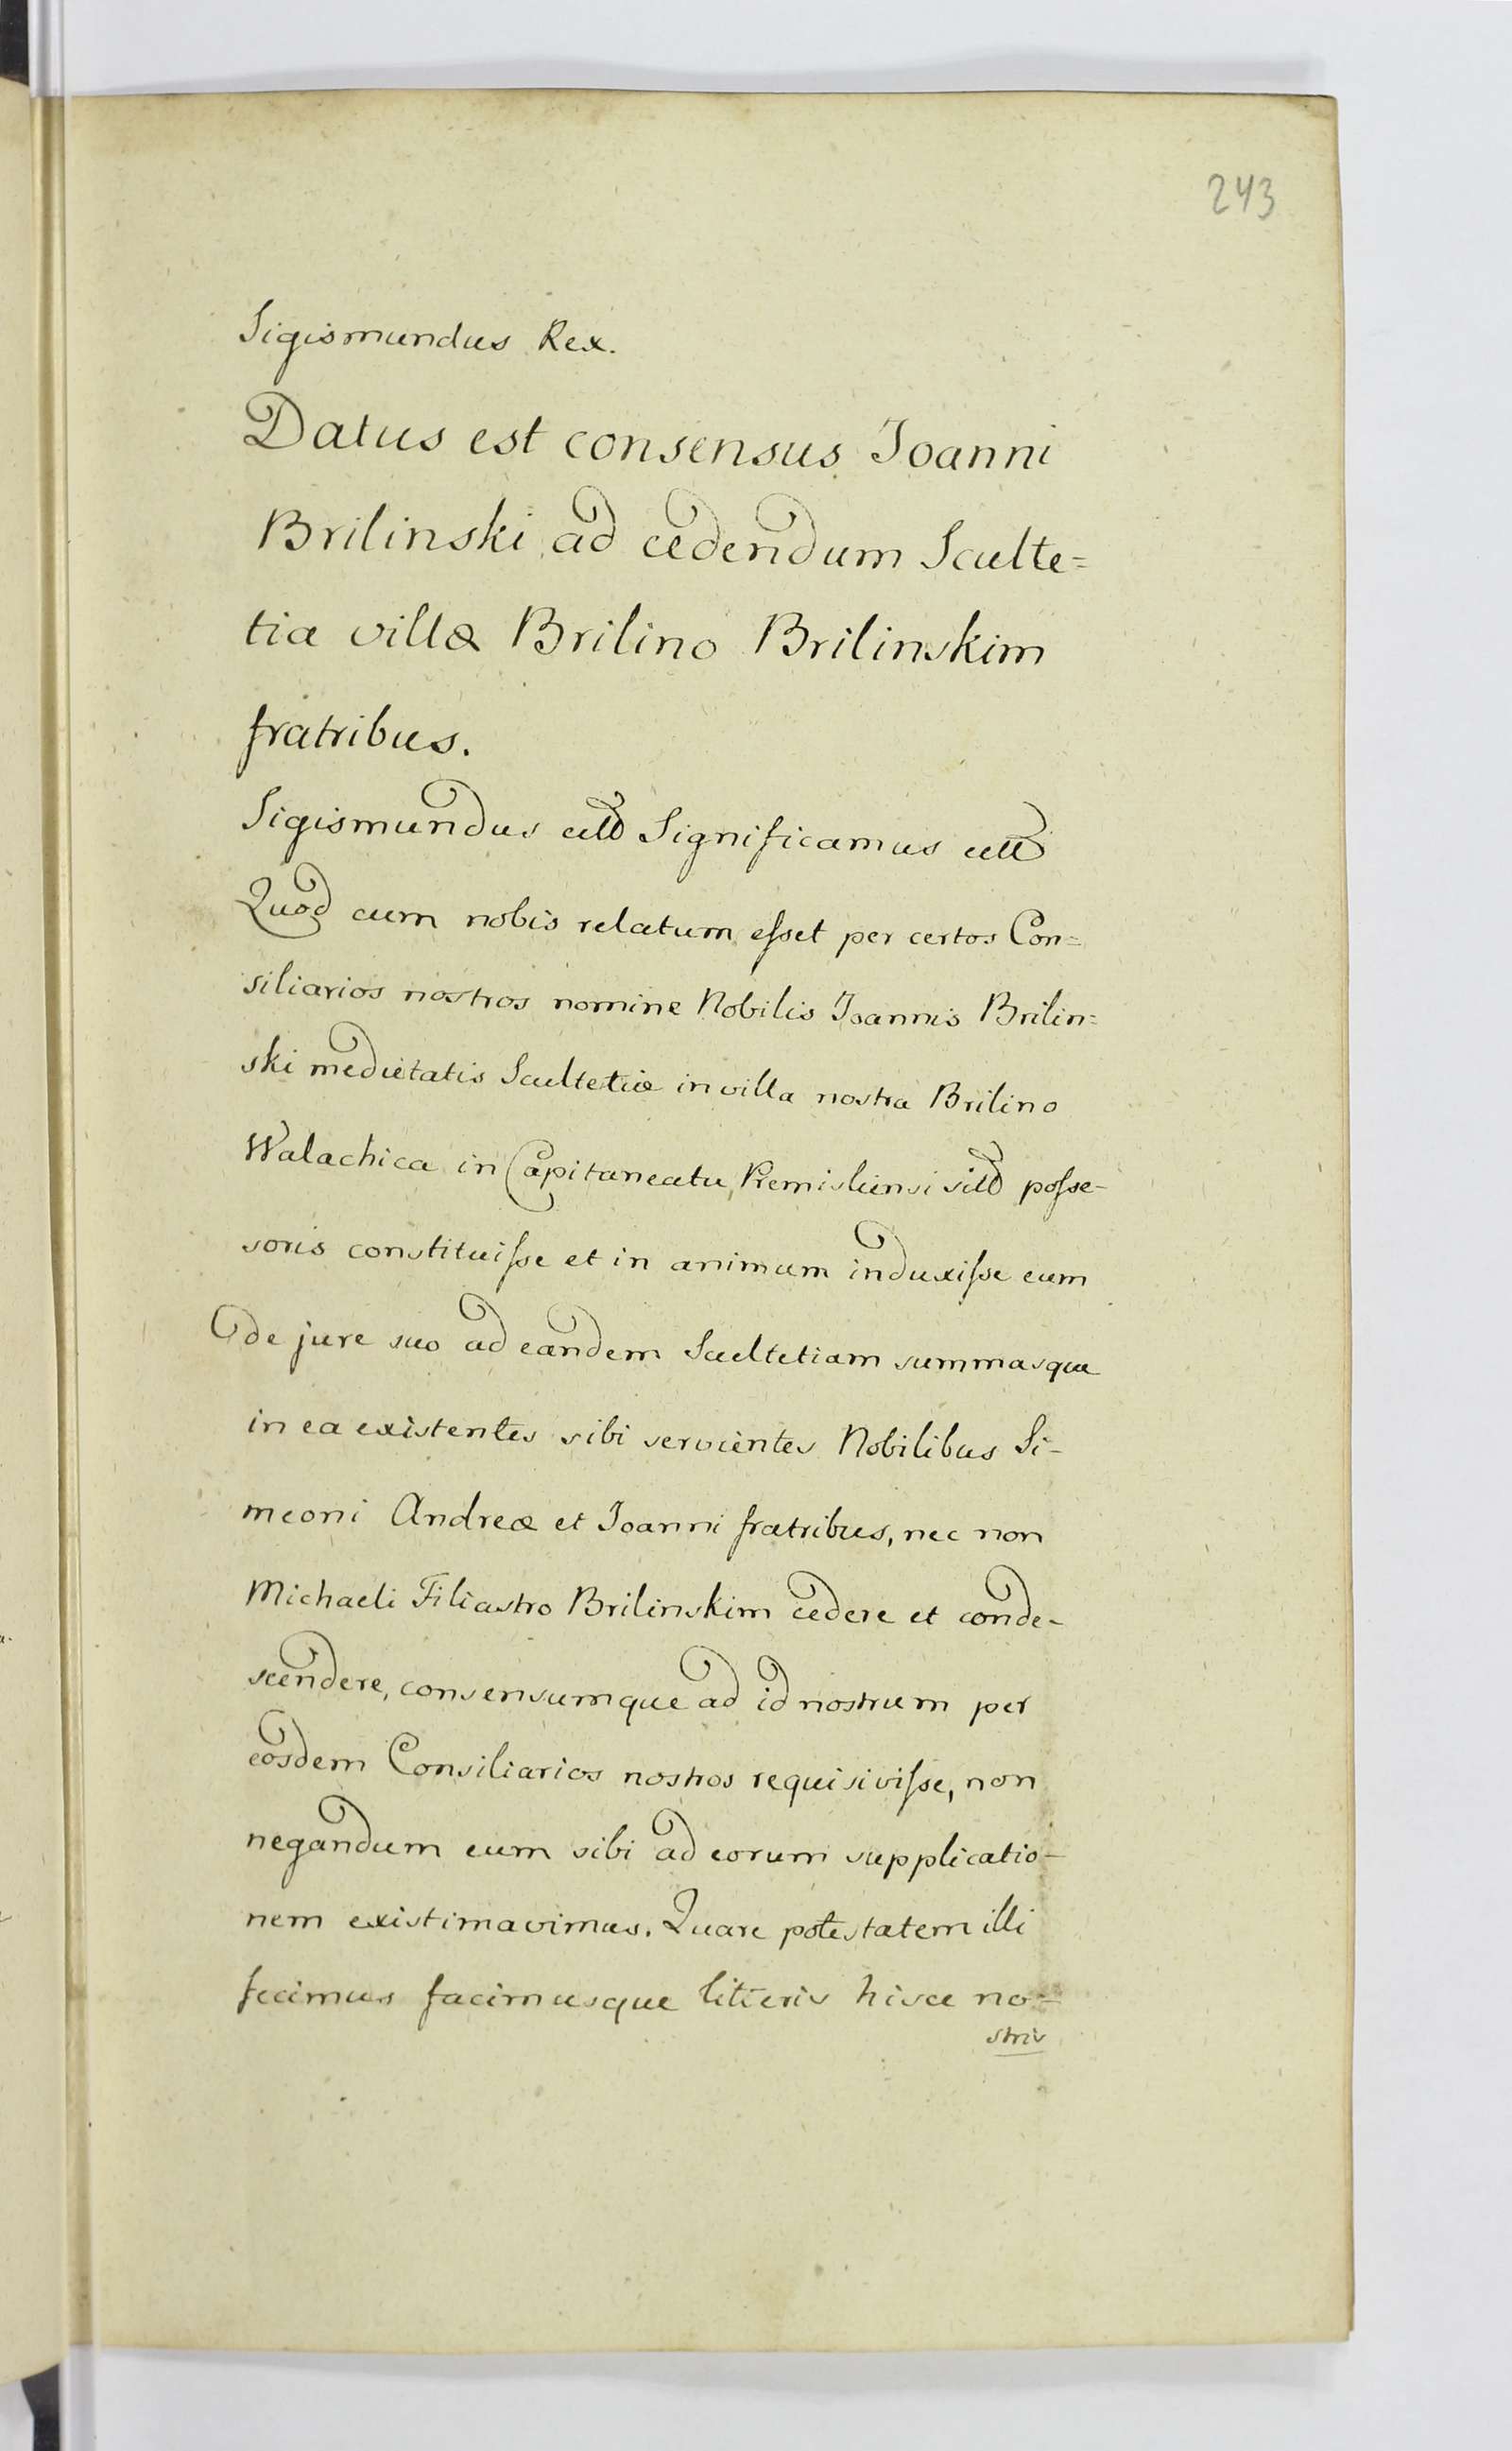 243
Sigismundus Rex.
Datus est consensus Joanni
Brilinski ad cedendum Sculte=
tiæ villæ Brilino Brilinskim
fratribus.
Sigismundus Significamus
Quod cum nobis relatum esset per certos Con=
siliarios nostros nomine Nobilis Joannis Brilin=
ski medietatis Scultetiæ in villa nostra Brilino
Walachica in Capitaneatu Premisliensi posse-
soris constituisse et in animum induxisse eum
de jure suo ad eandem Scultetiam summasque
in ea existentes sibi servientes Nobilibus Si-
meoni Andreæ et Joanni fratribus, nec non
Michaeli Filiastro Brilinskim cedere et conde-
scendere, consensumque ad id nostrum per
eosdem Consiliarios nostros requisivisse, non
negandum eum sibi ad eorum supplicatio-
nem existimavimus. Quare potestatem illi
fecimus facimusque litteris hisce no-
stris